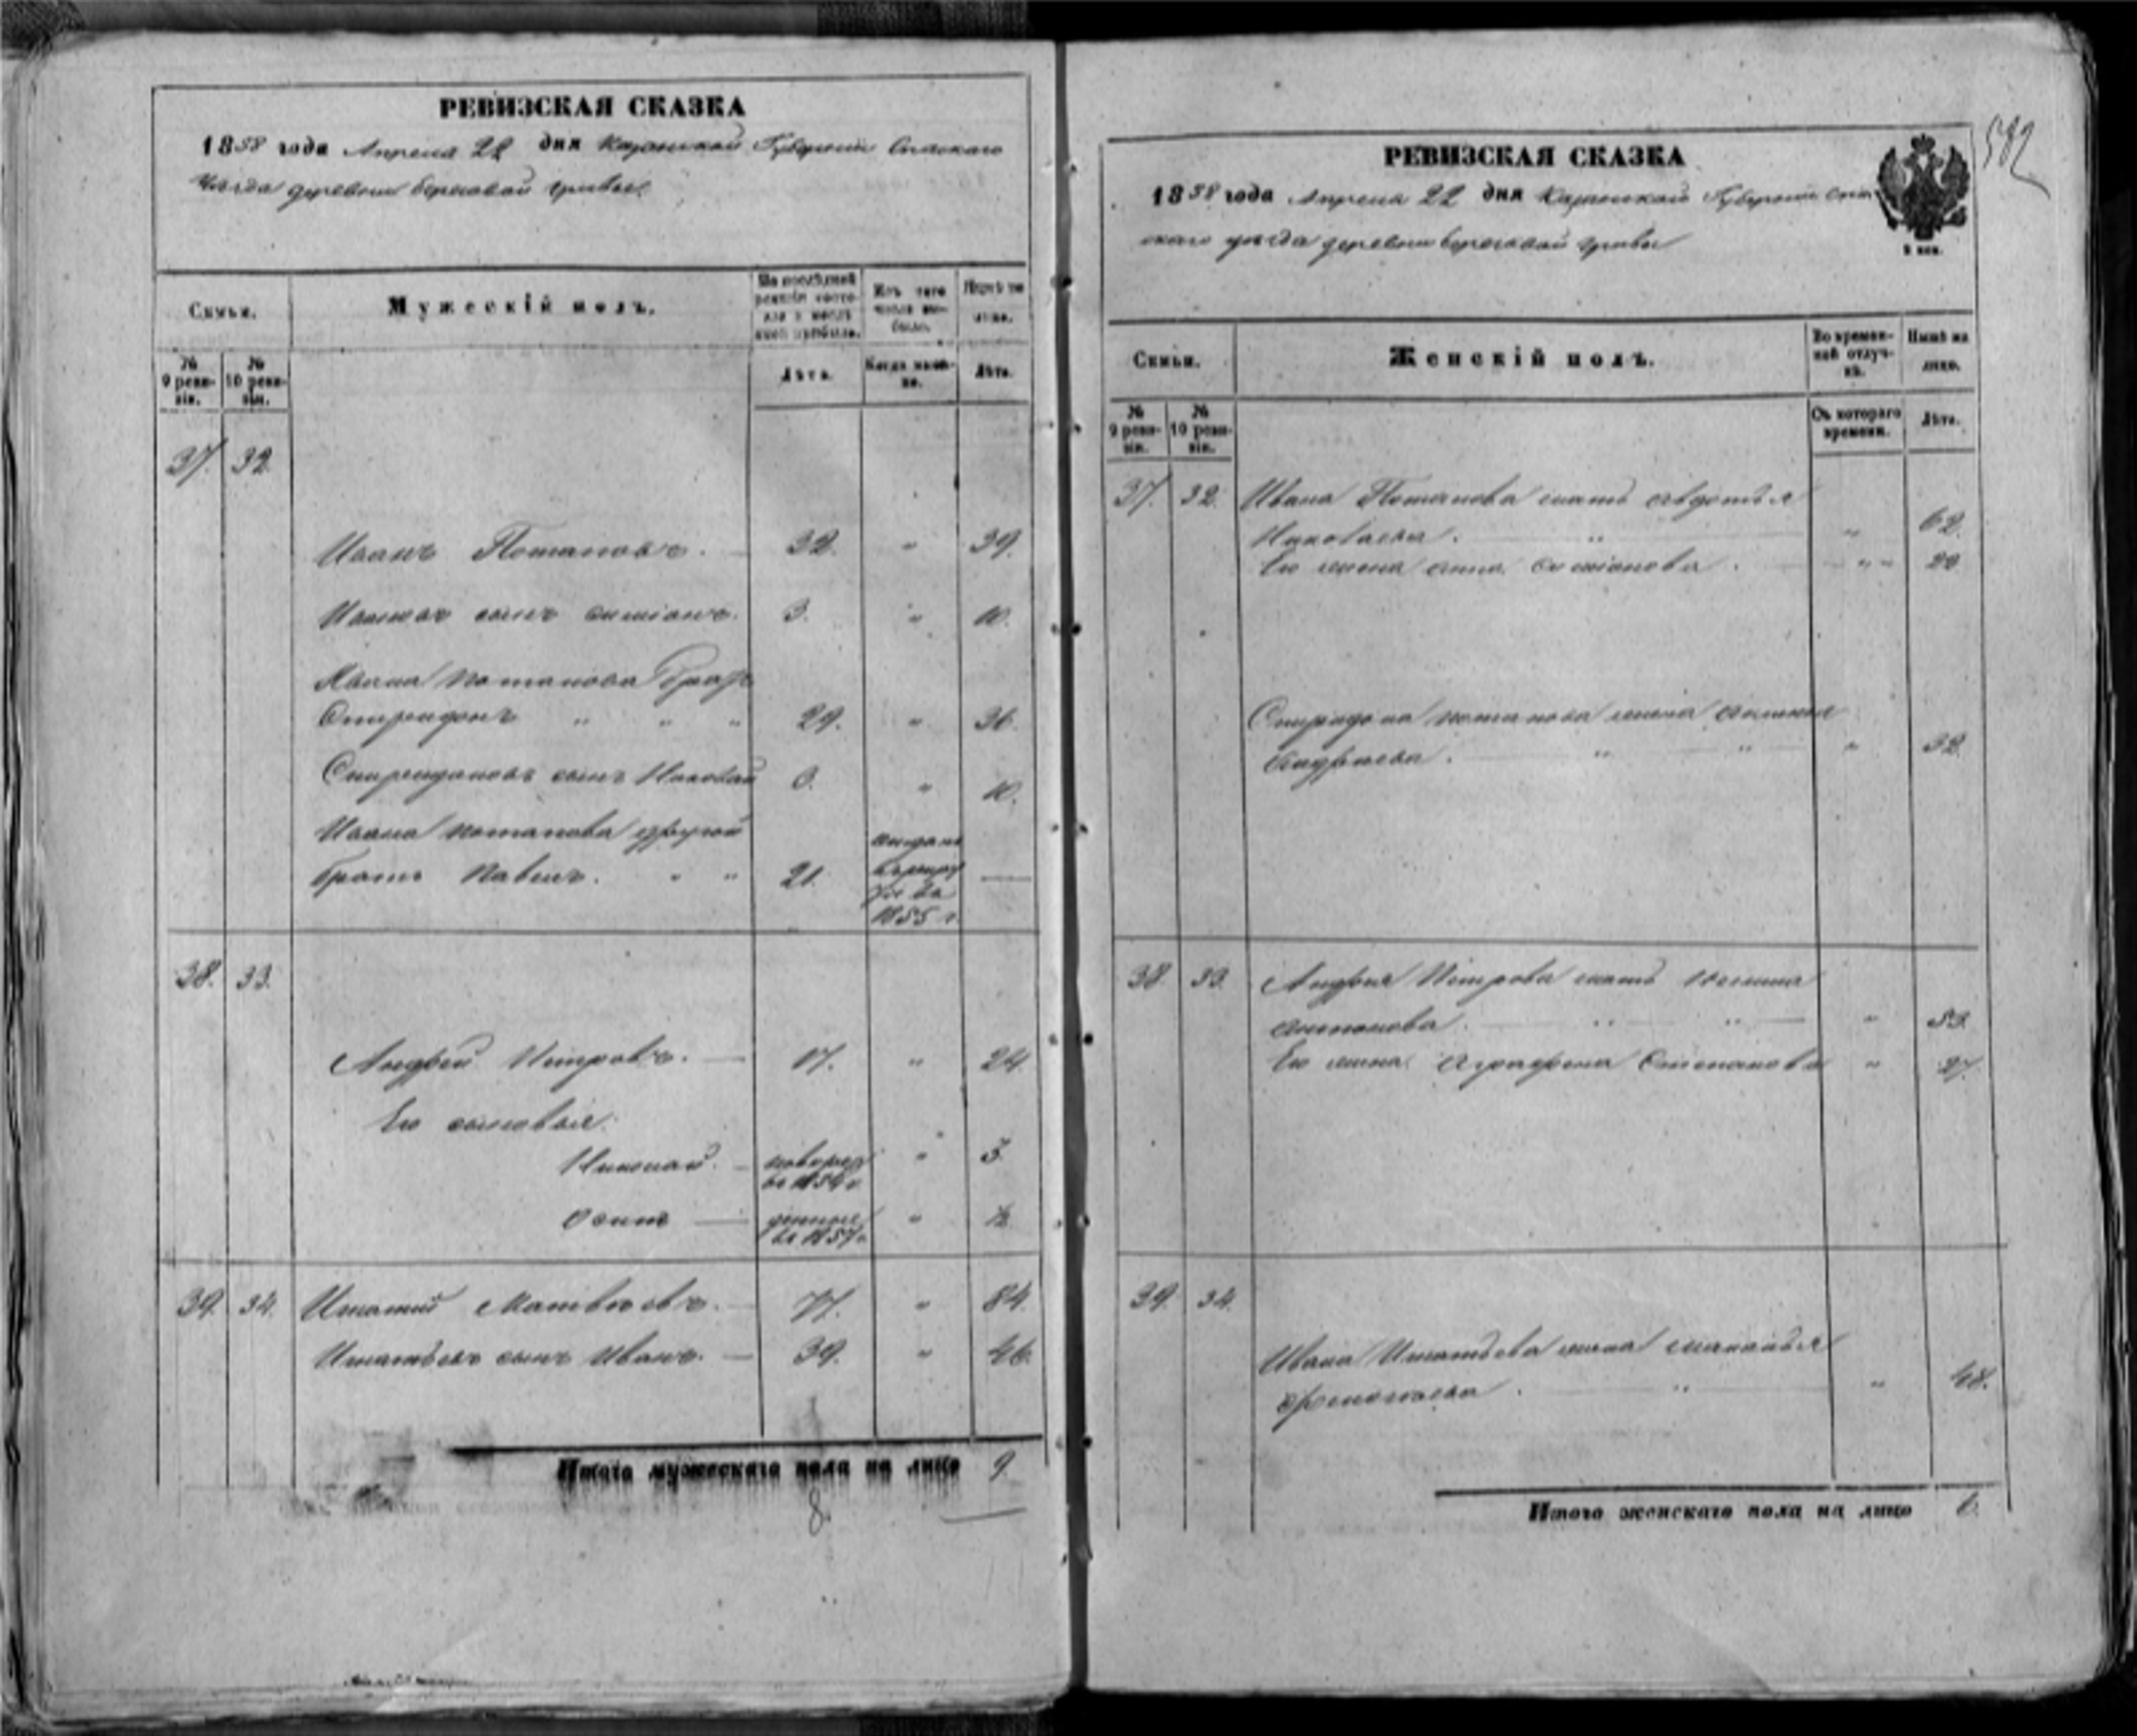 РЕВИЗСКАЯ СКАЗКА
1858 года Апреля 22 дня Казанской Губернии Спаскаго
Уезда деревни Березовой гривы.
Семьи.
Мужескій полъ.
На последней ревизіи состояло и после оной прибыло.
Изъ того числа выбыло.
Ныне на лицо.
№ 9 ревизіи.
№ 10 ревизіи.
Лета.
Когда именно.
Лета.
37. 32.
Иванъ Потаповъ. 32. " 39.
Ивановъ сынъ 3. " 10.
Ивана Потапова братъ
Спиридонъ " " " 29. " 36.
Спиридоновъ сынъ Николай 3. " 10.
Ивана Потапова другой
братъ Павелъ. " " 21. —
1855 г.
38. 33.
Андрей Петровъ. — 17. " 24
Его сыновья:
Николай. — новорож " 3.
въ 1854 г.
Осипъ — денные " ½
въ 1857 г.
39. 34. Игнатий Матвеевъ. — 77. " 84.
Игнатьевъ сынъ Иванъ. — 39. " 46.
Итого мужескаго пола на лицо 9
8.
582
РЕВИЗСКАЯ СКАЗКА
1858 года Апреля 22 дня Казанской Губернии Спа
скаго уезда деревни Березовой гривы
Семьи.
Женскій полъ.
Во временной отлучкѣ.
Нынѣ на лицо.
№ 9 ревизіи.
№ 10 ревизіи.
Съ котораго времени.
Лѣта.
37. 32. Ивана Потапова мать Авдотья
Николаева. " " 62.
Его жена Анна. " "
Спиридона Потапова жена
Андреева. " " " 32.
38. 33. Андрея Петрова мать
Антонова. " " " 53.
Его жена Аграфена Степанова " 27.
39. 34.
Ивана Игнатьева жена Маланья
" " 48.
Итого женскаго пола на лицо 6.